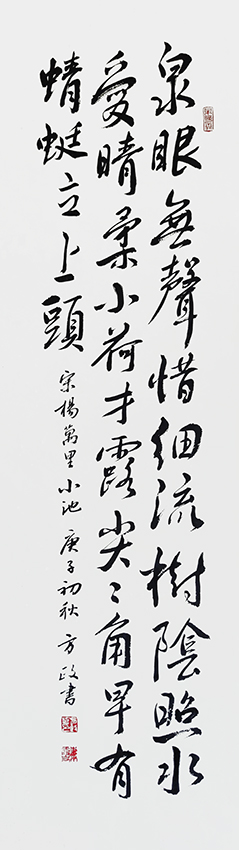 泉眼無聲惜細流樹陰照水
愛晴柔小荷才露尖〻角早有
蜻蜓立上頭
宋楊萬里小池 庚子初秋 方政書